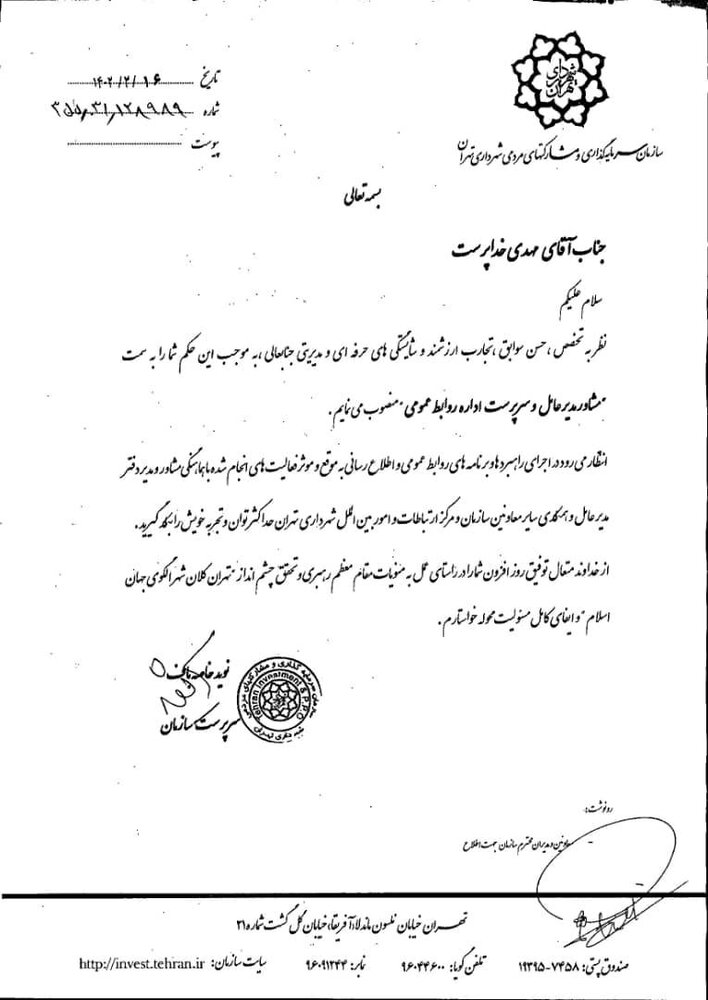 شهرداری تهران
سازمان سرمایه گذاری و مشارکتهای مردمی شهرداری تهران
تاریخ ۱۴۰۲/۲/۱۶
شماره
پیوست
بسمه تعالی
جناب آقای مهدی خداپرست
سلام علیکم
نظر به تخصص ، حسن سوابق ، تجارب ارزشمند و شایستگی های حرفه ای و مدیریتی جنابعالی ، به موجب این حکم شما را به سمت
"مشاور مدیر عامل و سرپرست اداره روابط عمومی" منصوب می نمایم .
انتظار می رود در اجرای راهبردها و برنامه های روابط عمومی و اطلاع رسانی به موقع و موثر فعالیت های انجام شده با هماهنگی مشاور و مدیر دفتر
مدیر عامل و همکاری سایر معاونین سازمان و مرکز ارتباطات و امور بین الملل شهرداری تهران حداکثر توان و تجربه خویش را بکار گیرید .
از خداوند متعال توفیق روز افزون شما را در راستای عمل به منویات مقام معظم رهبری و تحقق چشم انداز "تهران کلان شهر الگوی جهان
اسلام" و ایفای کامل مسئولیت محوله خواستارم .
نوید خاصه باف
سرپرست سازمان
سازمان سرمایه گذاری و مشارکتهای مردمی
Tehran Investment & P.P.O
شهرداری تهران
رونوشت:
- معاونین و مدیران محترم سازمان جهت اطلاع
تهران خیابان نلسون ماندلا (آفریقا)، خیابان گل گشت شماره ۳۱
صندوق پستی: ۷۴۵۸-۱۹۳۹۵ تلفن گویا: ۹۶۰۴۴۶۰۰ نمابر: ۹۶۰۹۱۲۴۴ سایت سازمان: http://invest.tehran.ir